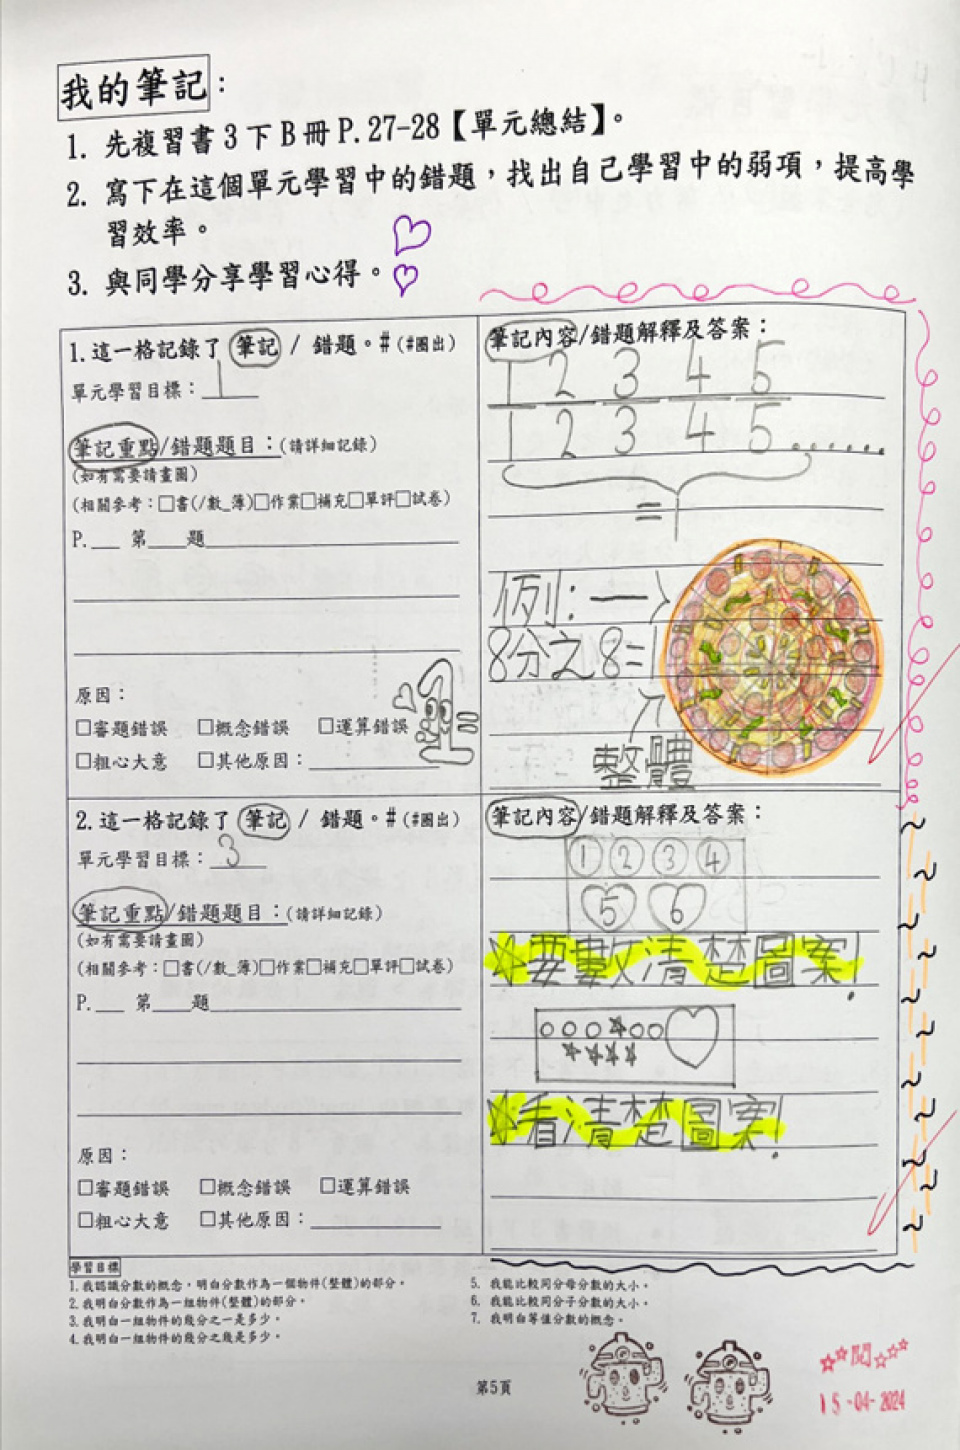 我的筆記：
1. 先複習書3下B冊P.27-28【單元總結】。
2. 寫下在這個單元學習中的錯題，找出自己學習中的弱項，提高學
習效率。
3. 與同學分享學習心得。
1.這一格記錄了 筆記 / 錯題。#(#圈出)
單元學習目標：1
筆記重點/錯題題目：(請詳細記錄)
(如有需要請畫圖)
(相關參考：□書(/數_簿)□作業□補充□單評□試卷)
P.___ 第____題
原因：
□審題錯誤 □概念錯誤 □運算錯誤
□粗心大意 □其他原因：
筆記內容/錯題解釋及答案：
1 2 3 4 5
1 2 3 4 5 ......
=1
例：一
8分之8=1
整體
2.這一格記錄了 筆記 / 錯題。#(#圈出)
單元學習目標：3
筆記重點/錯題題目：(請詳細記錄)
(如有需要請畫圖)
(相關參考：□書(/數_簿)□作業□補充□單評□試卷)
P.___ 第____題
原因：
□審題錯誤 □概念錯誤 □運算錯誤
□粗心大意 □其他原因：
筆記內容/錯題解釋及答案：
1 2 3 4
5 6
☆要數清楚圖案！
☆看清楚圖案！
學習目標
1.我認識分數的概念，明白分數作為一個物件(整體)的部分。
2.我明白分數作為一組物件(整體)的部分。
3.我明白一組物件的幾分之一是多少。
4.我明白一組物件的幾分之幾是多少。
5. 我能比較同分母分數的大小。
6. 我能比較同分子分數的大小。
7. 我明白等值分數的概念。
第5頁
閱
15-04-2024